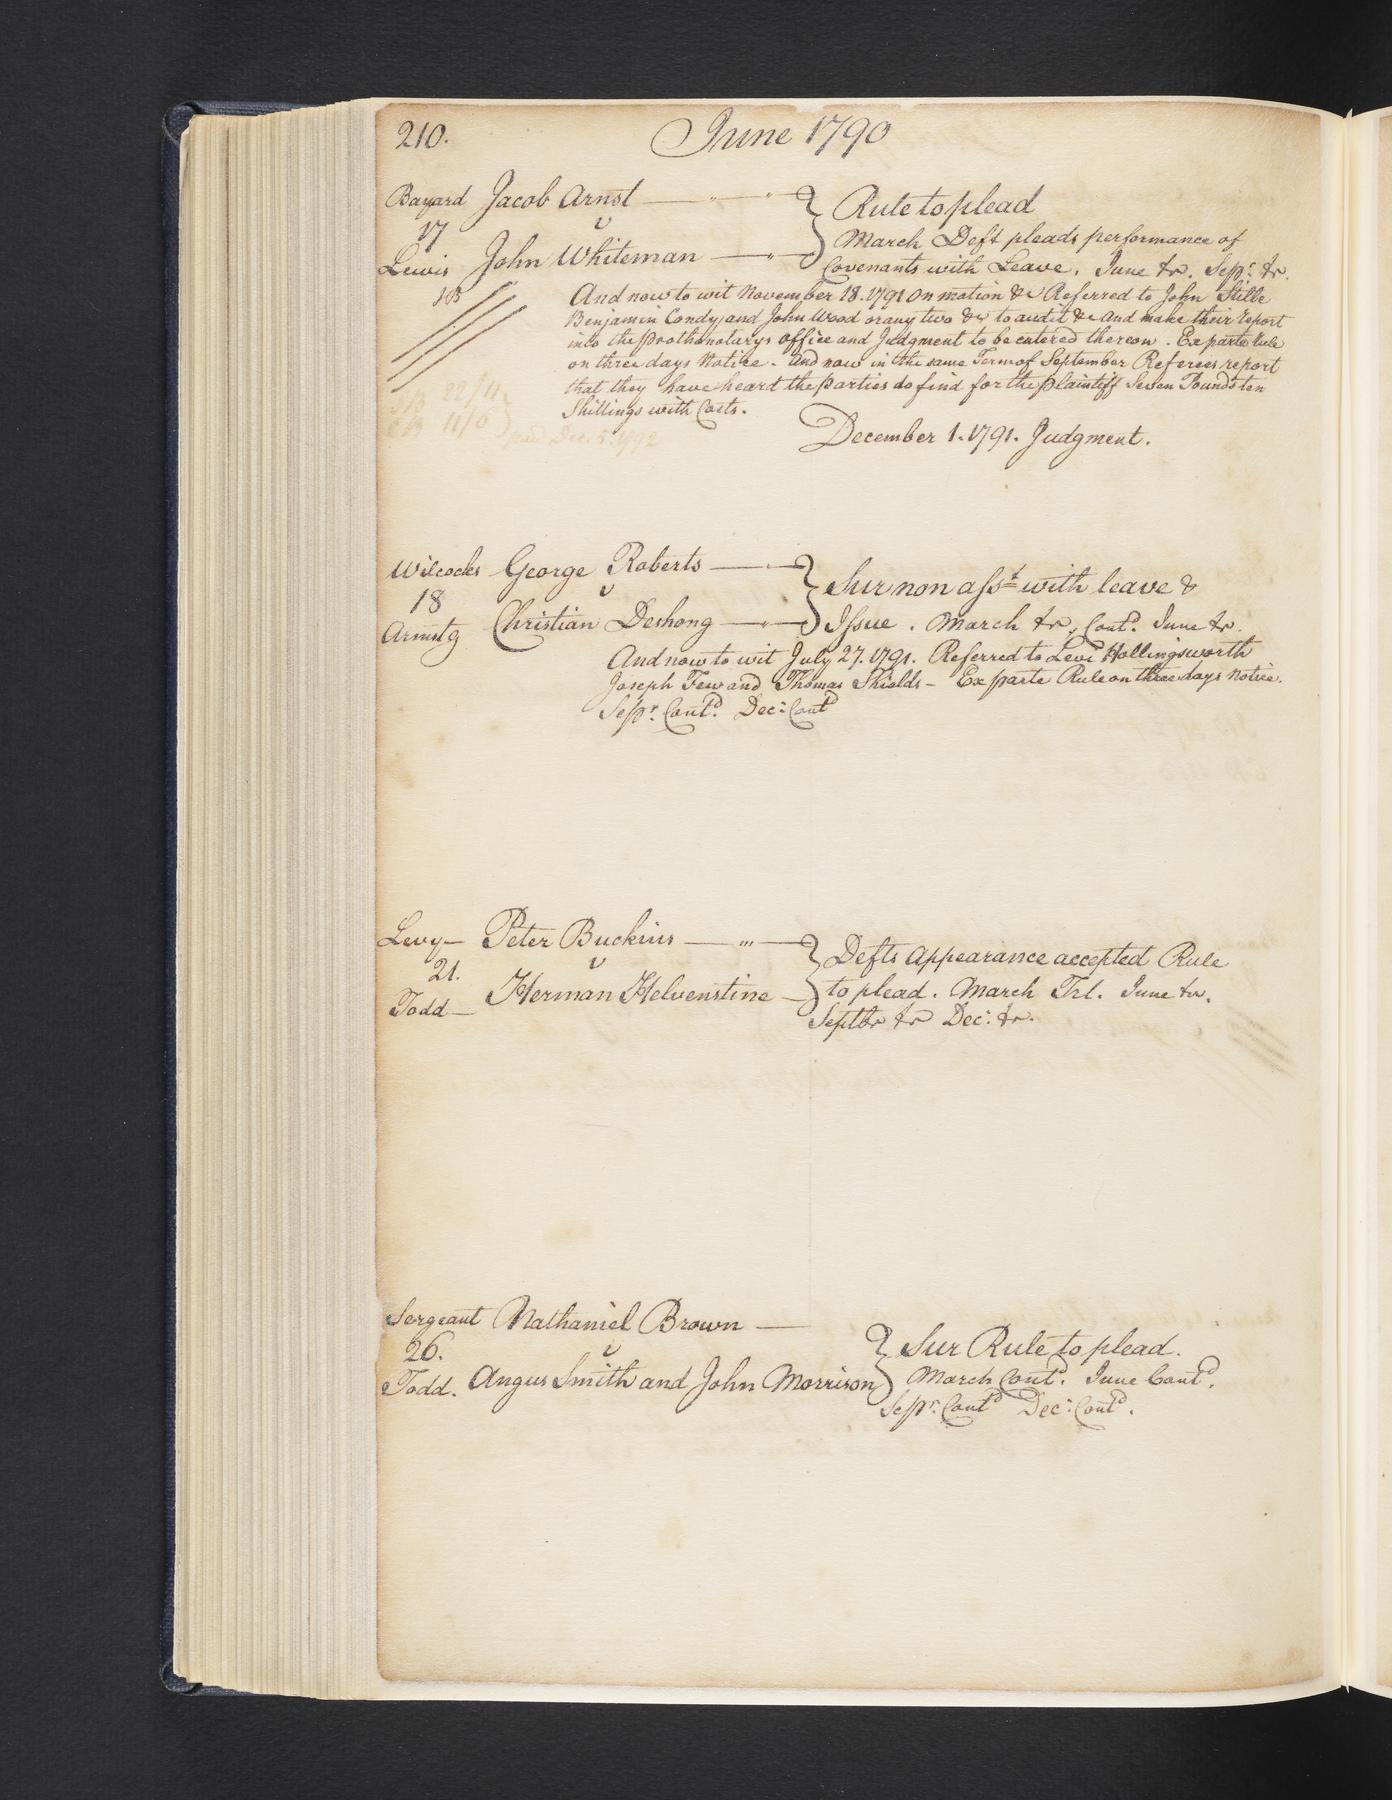 210. June 1790
Bayard Jacob Arnst
v
17
Lewis John Whiteman
Rule to plead
March Deft pleads performance of
Covenants with Leave. June &r. Sepr. &r.
And now to wit November 18. 1791 on motion &c Referred to John Stille
Benjamin Condy, and John Wood or any two &c to audit &c and make their report
into the prothonotarys office and Judgment to be entered thereon. Ex parte rule
on three days Notice. And now in the same Term of September Referees report
that they have heard the parties do find for the plaintiff Seven Pounds ten
Shillings with Costs.
22/11
11/0
paid Dec. 5. 1792
December 1. 1791. Judgment.
Wilcocks George Roberts
v
18
Armstg Christian Deshong
Sur non asst with leave &
Issue. March &r, Contd. June &r.
And now to wit July 27. 1791. Referred to Levi Hollingsworth
Joseph Few and Thomas Shields – Ex parte Rule on three days Notice.
Sepr. Contd. Dec: Contd
Levy– Peter Buckius
v
21.
Todd– Herman Helvenstine
Defts Appearance accepted Rule
to plead. March Trl. June &r.
Septbr &r Dec: &r.
Sergeant Nathaniel Brown
v
26.
Todd. Angus Smith and John Morrison
Sur Rule to plead.
March Contd. June Contd.
Sepr. Contd Dec: Contd.